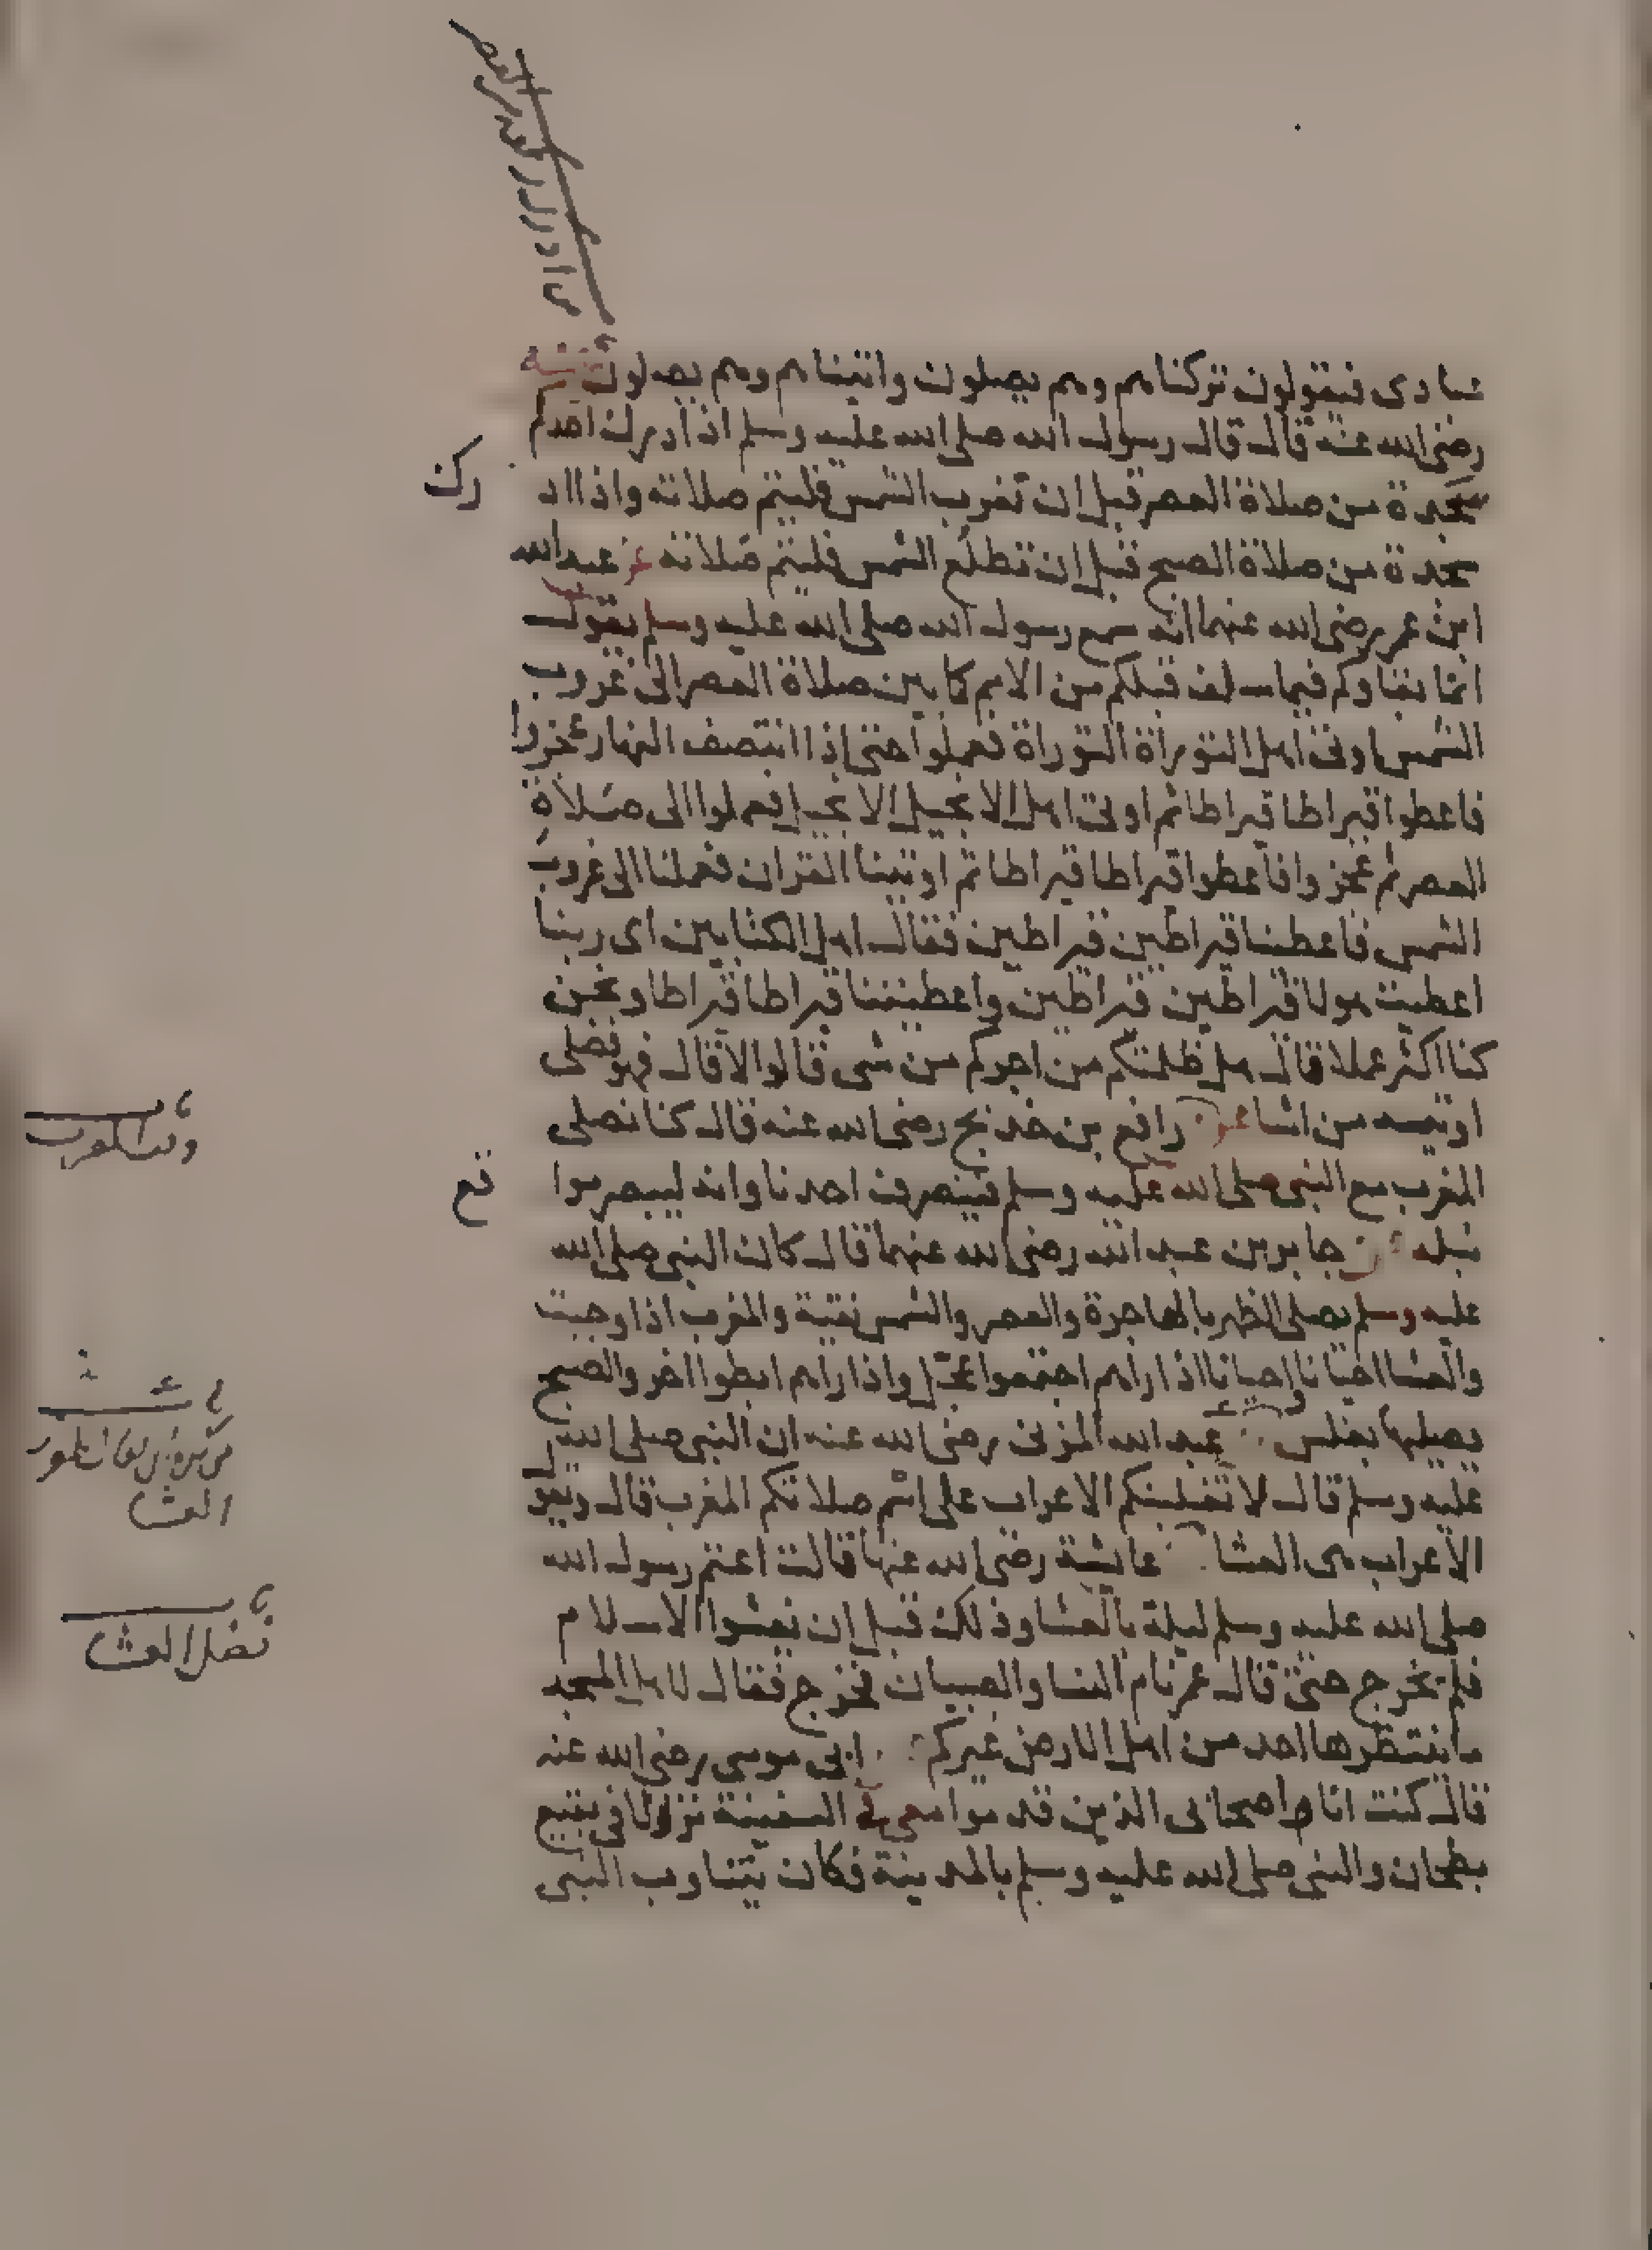 عبادى فيقولون تركناهم وهم يصلون واتيناهم وهم يصلون وعنه
رضى الله عنه قال قال رسول الله صلى الله عليه وسلم اذا ادرك احدكم
سجدة من صلاة العصر قبل ان تغرب الشمس فليتم صلاته واذا اد
رك
سجدة من صلاة الصبح قبل ان تطلع الشمس فليتم صلاته عن عبد الله
ابن عمر رضى الله عنهما انه سمع رسول الله صلى الله عليه وسلم يقول
انما بقاوكم فيما سلف قبلكم من الامم كما بين صلاة العصر الى غروب
الشمس اوتى اهل التوراة التوراة فعملوا حتى اذا انتصف النهار عجزوا
فاعطوا قيراطا قيراطا ثم اوتى اهل الانجيل الانجيل فعملوا الى صلاة
العصر ثم عجزوا فاعطوا قيراطا قيراطا ثم اوتينا القران فعملنا الى غروب
الشمس فاعطينا قيراطين قيراطين فقال اهل الكتابين اى ربنا
اعطيت هولا قيراطين قيراطين واعطيتنا قيراطا قيراطا ونحن
كنا اكثر عملا قال هل ظلمتكم من اجركم من شى قالوا لا قال فهو فضلى
اوتيه من اشا عن رافع بن خديج رضى الله عنه قال كنا نصلى
وقت المغرب
المغرب مع النبى صلى الله عليه وسلم فينصرف احدنا وانه ليبصر موا
قع
نبله عن جابر بن عبد الله رضى الله عنهما قال كان النبى صلى الله
عليه وسلم يصلى الظهر بالهاجرة والعصر والشمس نقية والمغرب اذا وجبت
والعشا احيانا واحيانا اذا راهم اجتمعوا عجل واذا راهم ابطوا اخر والصبح
يصليها بغلس عن عبد الله المزنى رضى الله عنه ان النبى صلى الله
من كره ان يقال للمغرب
العشا
عليه وسلم قال لا تغلبنكم الاعراب على اسم صلاتكم المغرب قال ويقول
الاعراب هى العشا عن عائشة رضى الله عنها قالت اعتم رسول الله
صلى الله عليه وسلم ليلة بالعشا وذلك قبل ان يفشوا الاسلام
فضل العشا
فلم يخرج حتى قال عمر نام النسا والصبيان فخرج فقال لاهل المسجد
ما ينتظرها احد من اهل الارض غيركم عن ابى موسى رضى الله عنه
قال كنت انا واصحابى الذين قدموا معى فى السفينة نزولا فى بقيع
بطحان والنبى صلى الله عليه وسلم بالمدينة فكان يتناوب النبى